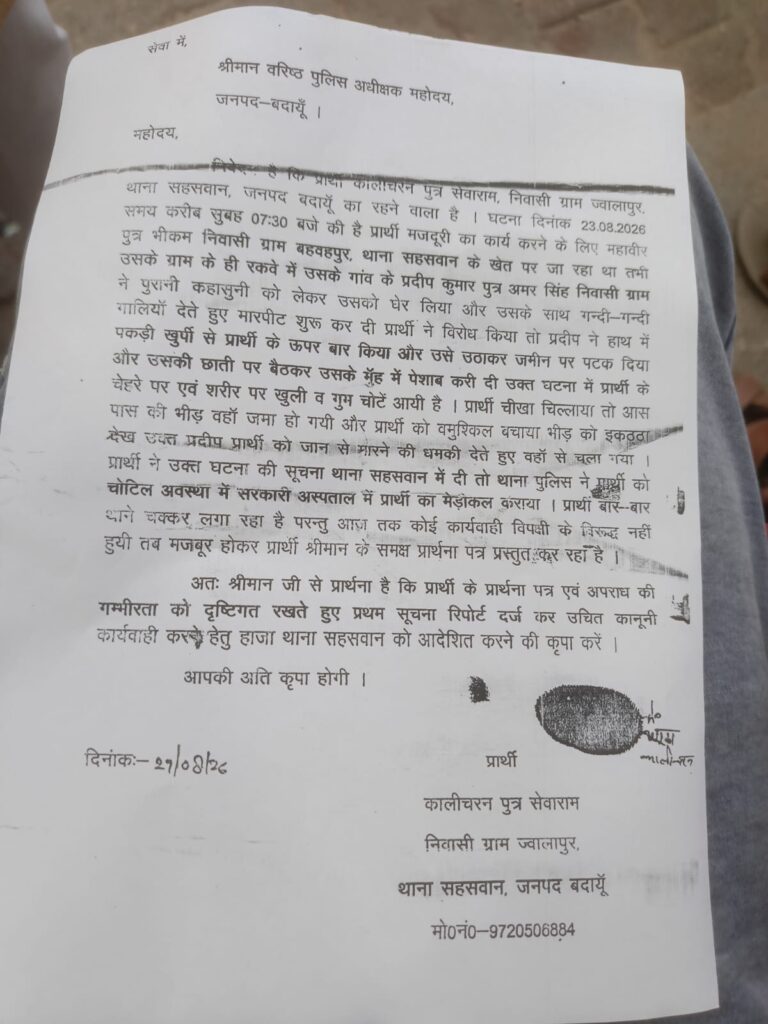 सेवा में,
श्रीमान वरिष्ठ पुलिस अधीक्षक महोदय,
जनपद–बदायूँ ।
महोदय,
निवेदन है कि प्रार्थी कालीचरन पुत्र सेवाराम, निवासी ग्राम ज्वालापुर,
थाना सहसवान, जनपद बदायूं का रहने वाला है । घटना दिनांक 23.08.2026
समय करीब सुबह 07:30 बजे की है प्रार्थी मजदूरी का कार्य करने के लिए महावीर
पुत्र भीकम निवासी ग्राम बहवहपुर, थाना सहसवान के खेत पर जा रहा था तभी
उसके ग्राम के ही रकवे में उसके गांव के प्रदीप कुमार पुत्र अमर सिंह निवासी ग्राम
ने पुरानी कहासुनी को लेकर उसको घेर लिया और उसके साथ गन्दी–गन्दी
गालियाँ देते हुए मारपीट शुरू कर दी प्रार्थी ने विरोध किया तो प्रदीप ने हाथ में
पकड़ी खुर्पी से प्रार्थी के ऊपर बार किया और उसे उठाकर जमीन पर पटक दिया
और उसकी छाती पर बैठकर उसके मुँह में पेशाब करी दी उक्त घटना में प्रार्थी के
चेहरे पर एवं शरीर पर खुली व गुम चोटें आयी है । प्रार्थी चीखा चिल्लाया तो आस
पास की भीड़ वहाँ जमा हो गयी और प्रार्थी को वमुश्किल बचाया भीड़ को इकठठा
देख उक्त प्रदीप प्रार्थी को जान से मारने की धमकी देते हुए वहाँ से चला गया ।
प्रार्थी ने उक्त घटना की सूचना थाना सहसवान में दी तो थाना पुलिस ने प्रार्थी को
चोटिल अवस्था में सरकारी अस्पताल में प्रार्थी का मेडीकल कराया । प्रार्थी बार–बार
थाने चक्कर लगा रहा है परन्तु आज तक कोई कार्यवाही विपक्षी के विरूद्ध नहीं
हुयी तब मजबूर होकर प्रार्थी श्रीमान के समक्ष प्रार्थना पत्र प्रस्तुत कर रहा है ।
अतः श्रीमान जी से प्रार्थना है कि प्रार्थी के प्रार्थना पत्र एवं अपराध की
गम्भीरता को दृष्टिगत रखते हुए प्रथम सूचना रिपोर्ट दर्ज कर उचित कानूनी
कार्यवाही करने हेतु हाजा थाना सहसवान को आदेशित करने की कृपा करें ।
आपकी अति कृपा होगी ।
दिनांकः–
प्रार्थी
कालीचरन पुत्र सेवाराम
निवासी ग्राम ज्वालापुर,
थाना सहसवान, जनपद बदायूँ
मो0नं0–9720506884